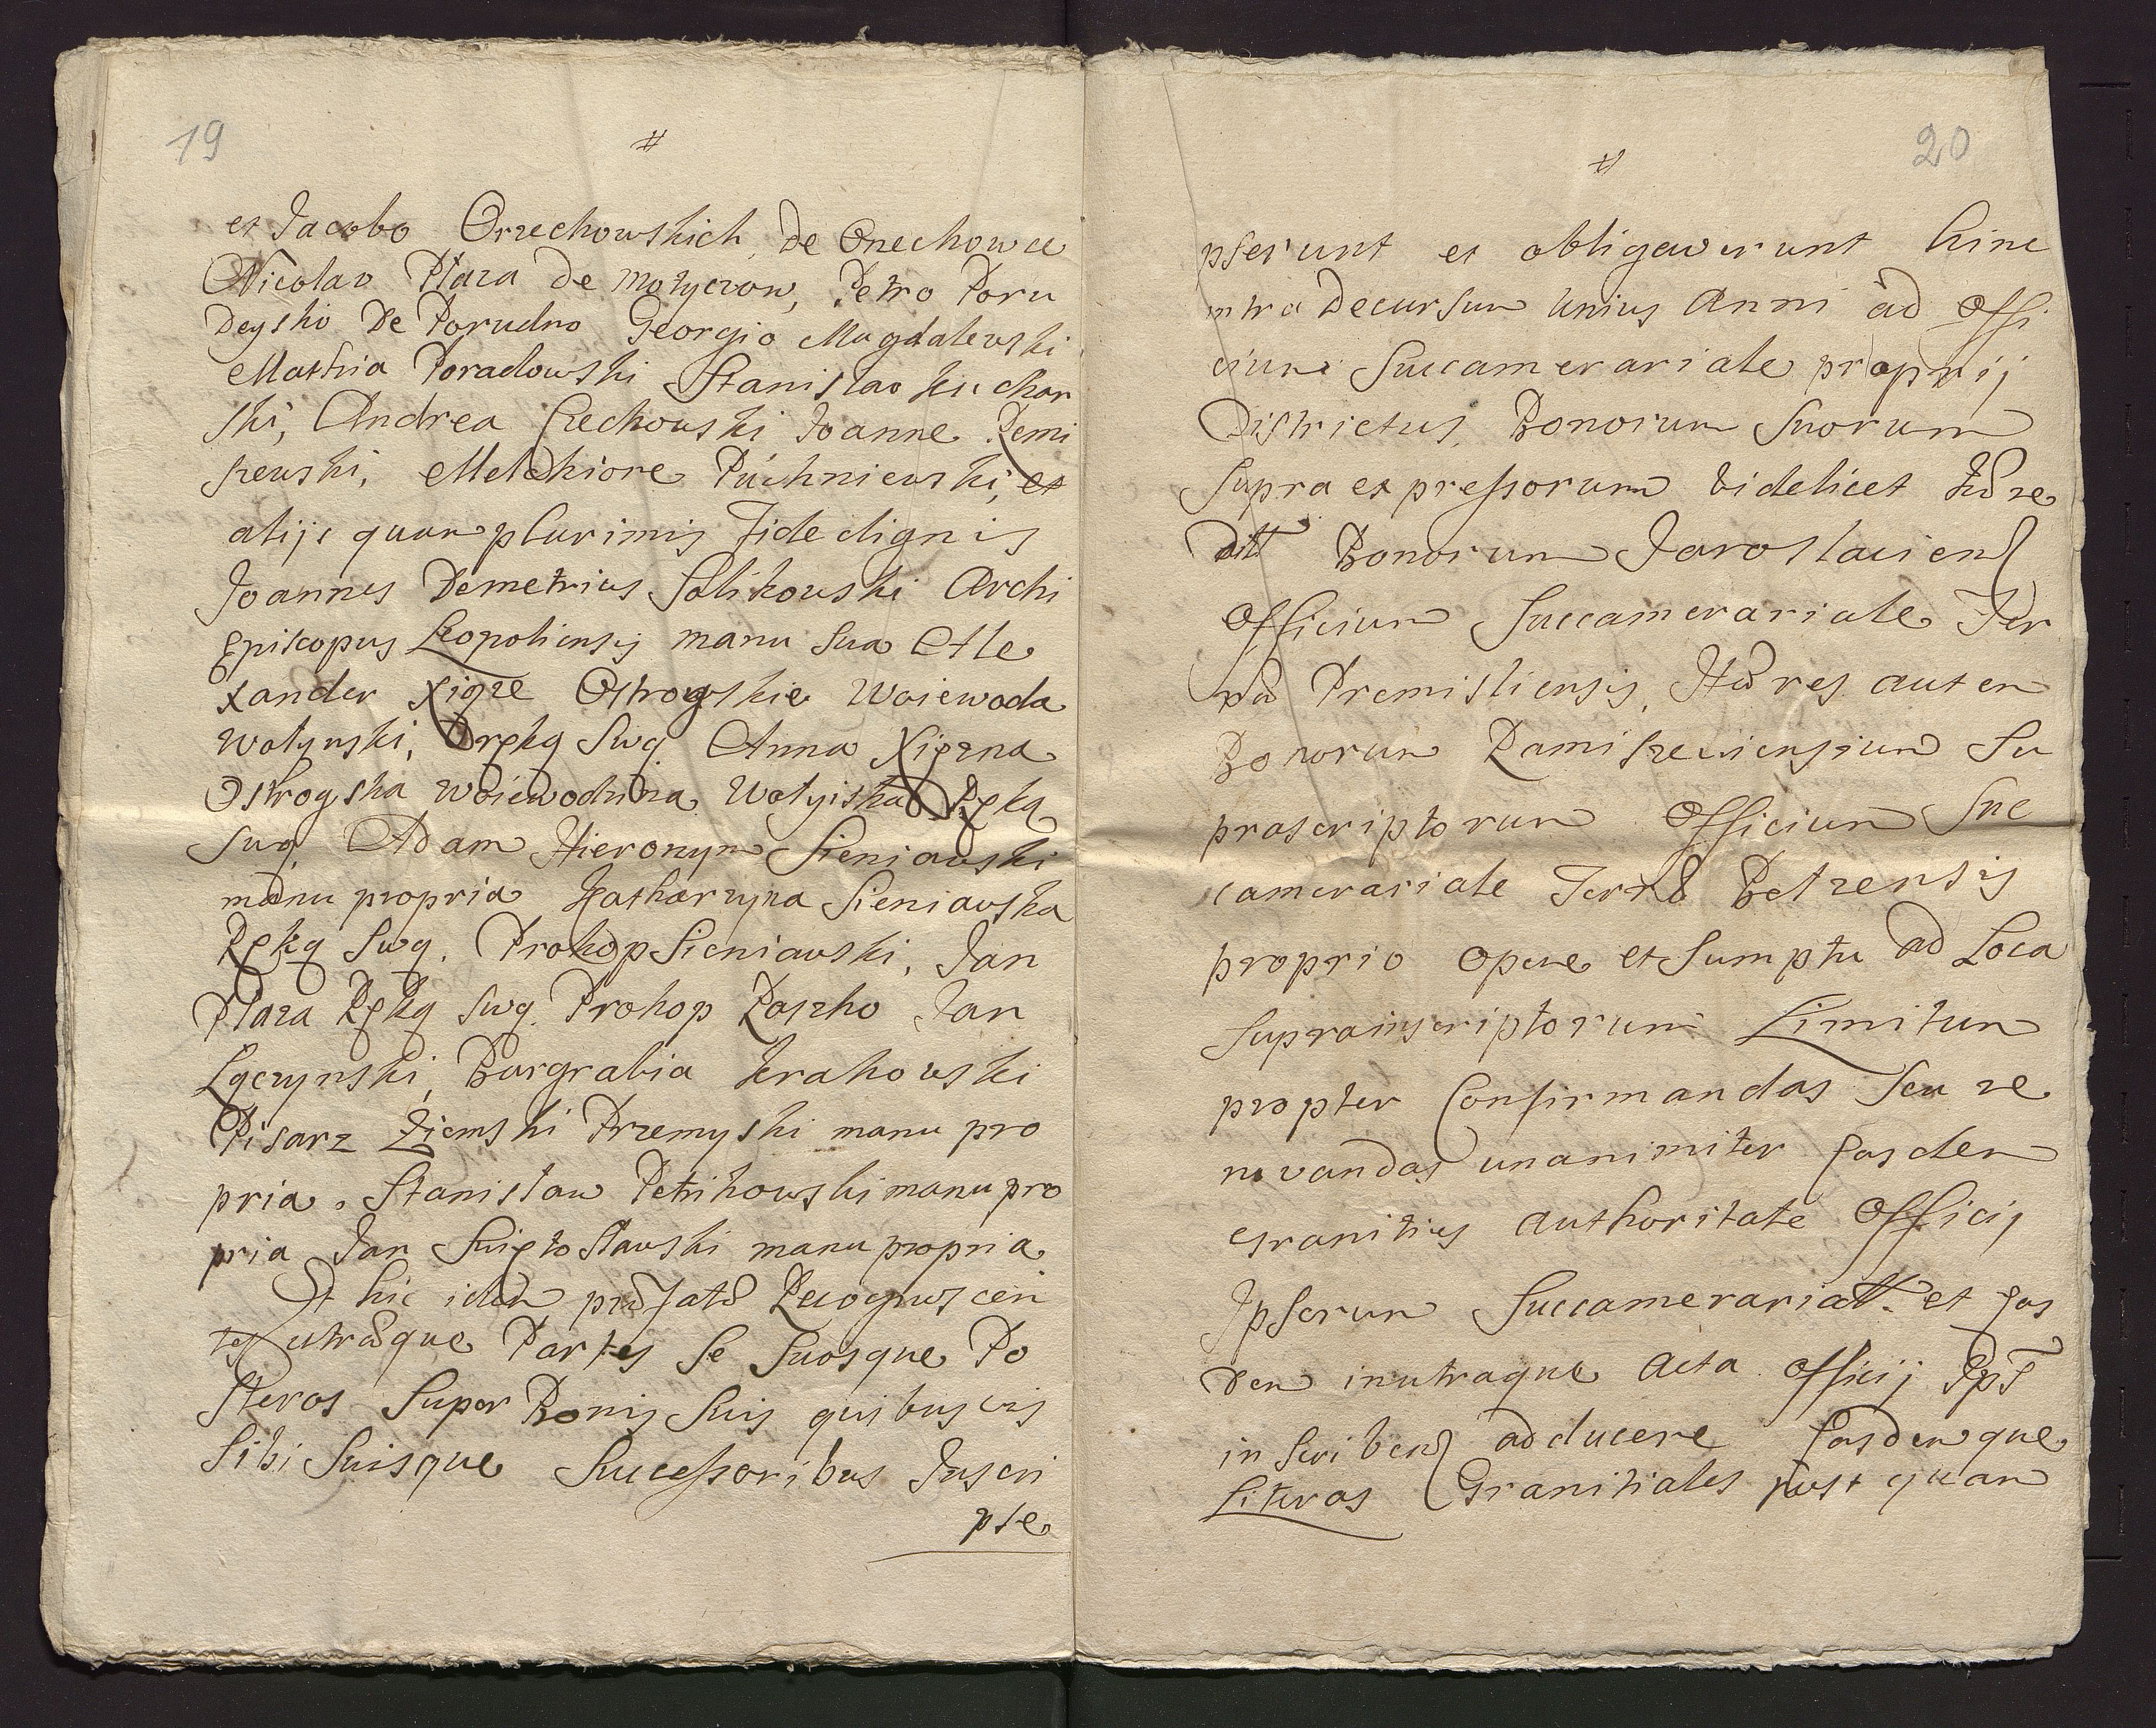 19
#
et Jacobo Orzechowskich de Orzechowce
Nicolao Ptaza de Motyczow, Petro Poru
deyski de Porudno Georgio Magdalewski
Mathia Poradowski Stanislao Kuchar
ski, Andrea Czechowski Joanne Remi
szewski, Melchiore Puchniewski, et
alijs quam plurimis Fide dignis
Joannes Demetrius Solikowski Archi
Episcopus Leopoliensis manu sua Ale
xander Xiąze Ostrogskie Woiewoda
Wołynski, Ręką Swą Anna Xięzna
Ostrogska Woiewodzina Wołyiska Ręką
Swą, Adam Hieronym Sieniawski
manu propria Katharzyna Sieniawska
Ręką Swą. Prokop Sieniawski, Jan
Ptaza Ręką Swą. Prokop Raszko Jan
Łączynski, Burgrabia Krakowski
Pisarz Ziemski Przemyski manu pro
pria. Stanisław Petrikowski manu pro
pria Jan Swiętosławski manu propria
Et hic idem præfatæ Recognoscen
tes utræque Partes Se Suosque Po
steros Super Bonis Suis quibusvis
Sibi Suisque Successoribus Inscri
pse
20
#
pserunt et obligaverunt hinc
intra Decursum Unius Anni ad Offi
cium Succamerariale proprij
Districtus, Bonorum Suorum
Supra expressorum videlicet Hære
ditt Bonorum Jaroslaviens
Officium Succamerariale Ter
ræ Premisliensis, Hæres autem
Bonorum Ramiszeviensium Su
prascriptorum Officium Suc
camerariale Terræ Belzensis
proprio opere et Sumptu ad Loca
Suprainscriptorum Limitum
propter Confirmandas Seu re
novandas unanimiter Easdem
Granities authoritate Officij
Ipsorum Succamerariatt et Eas
dem in utraque Acta Officij Ips
inscribend adducere Easdemque
Literas Granitiales postquam